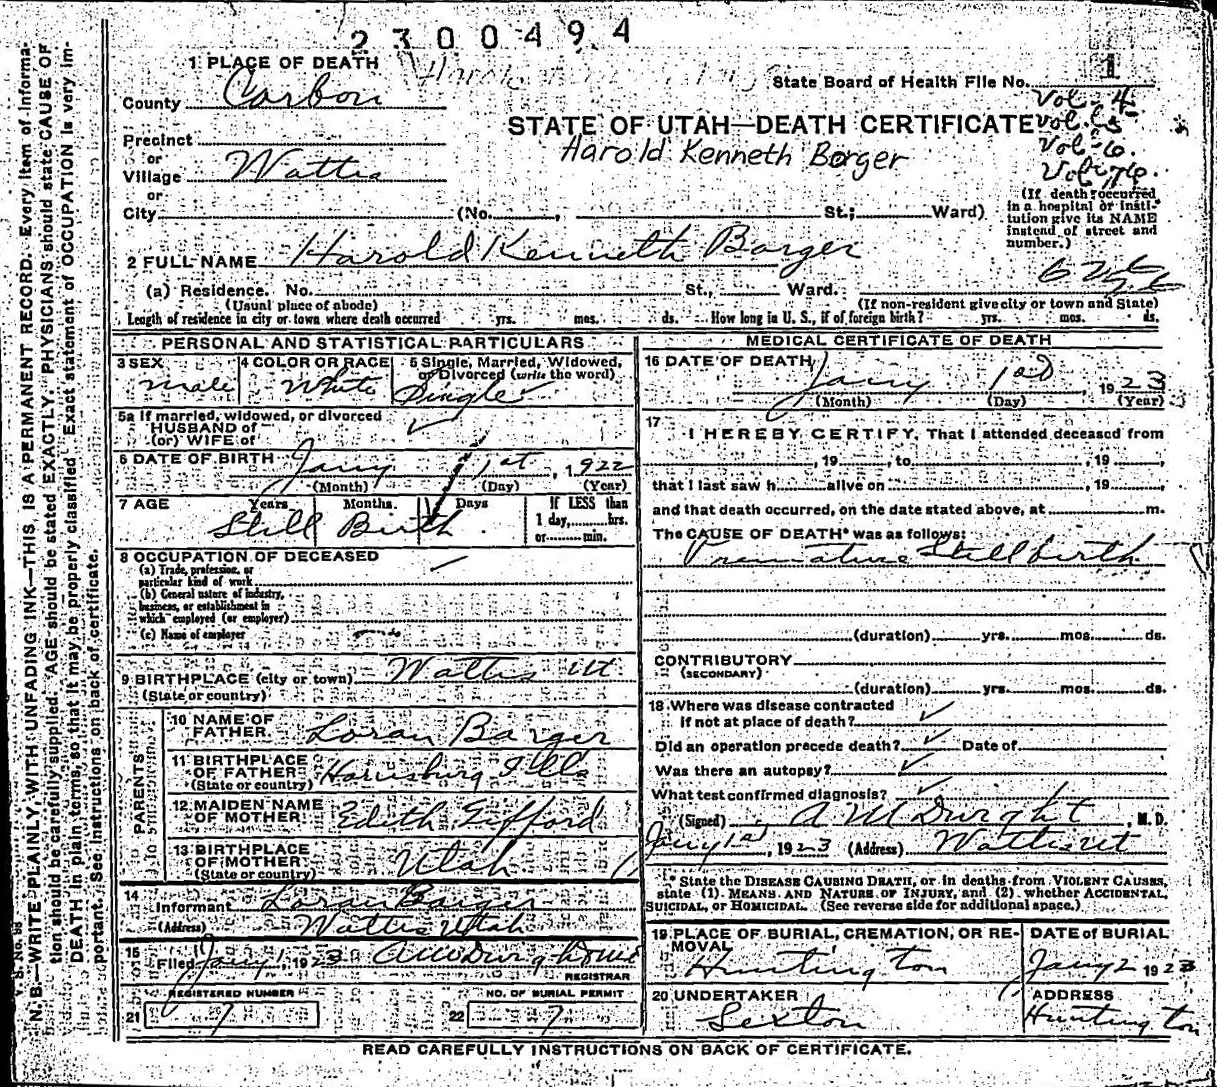 2300494
1 PLACE OF DEATH
State Board of Health File No. 1
County Carbon
Vol. 4
STATE OF UTAH—DEATH CERTIFICATE
Vol. 5
Precinct
Harold Kenneth Borger
Vol. 6.
or
Village Wattis
or
(If death occurred in a hospital or institution give its NAME instead of street and number.)
City (No. , St.; Ward)
2 FULL NAME Harold Kenneth Barger
(a) Residence. No. St., Ward.
(Usual place of abode) (If non-resident give city or town and State)
Length of residence in city or town where death occurred yrs. mos. ds. How long in U. S., if of foreign birth? yrs. mos. ds.
PERSONAL AND STATISTICAL PARTICULARS
3 SEX male
4 COLOR OR RACE White
5 Single, Married, Widowed, or Divorced (write the word) Single
5a If married, widowed, or divorced
HUSBAND of
(or) WIFE of
6 DATE OF BIRTH Jany 1st, 1922
(Month) (Day) (Year)
7 AGE Years Months Days If LESS than
1 day, hrs.
or min.
Still Birth
8 OCCUPATION OF DECEASED
(a) Trade, profession, or
particular kind of work
(b) General nature of industry,
business, or establishment in
which employed (or employer)
(c) Name of employer
9 BIRTHPLACE (city or town) Wattis Ut
(State or country)
PARENTS
10 NAME OF FATHER Loran Barger
11 BIRTHPLACE OF FATHER Harrisburg Ills
(State or country)
12 MAIDEN NAME OF MOTHER Edith Gifford
13 BIRTHPLACE OF MOTHER Utah
(State or country)
14 Informant Loran Barger
(Address) Wattis Utah
15 Filed Jany 1, 1923 A M Dwight
REGISTRAR
REGISTERED NUMBER
21 7
NO. OF BURIAL PERMIT
22 7
MEDICAL CERTIFICATE OF DEATH
16 DATE OF DEATH Jany 1st 1923
(Month) (Day) (Year)
17
I HEREBY CERTIFY, That I attended deceased from
, 19 , to , 19 ,
that I last saw h alive on , 19 ,
and that death occurred, on the date stated above, at m.
The CAUSE OF DEATH* was as follows:
Premature Stillbirth
(duration) yrs. mos. ds.
CONTRIBUTORY
(SECONDARY)
(duration) yrs. mos. ds.
18 Where was disease contracted
if not at place of death?
Did an operation precede death? Date of
Was there an autopsy?
What test confirmed diagnosis?
(Signed) A M Dwight, M. D.
Jany 1st, 1923 (Address) Wattis Ut
* State the DISEASE CAUSING DEATH, or in deaths from VIOLENT CAUSES,
state (1) MEANS AND NATURE OF INJURY, and (2) whether ACCIDENTAL,
SUICIDAL, or HOMICIDAL. (See reverse side for additional space.)
19 PLACE OF BURIAL, CREMATION, OR REMOVAL Huntington
DATE of BURIAL Jany 2 1923
20 UNDERTAKER Sexton
ADDRESS Huntington
READ CAREFULLY INSTRUCTIONS ON BACK OF CERTIFICATE.
V. S. No. 98
N. B.—WRITE PLAINLY, WITH UNFADING INK—THIS IS A PERMANENT RECORD. Every item of information should be carefully supplied. AGE should be stated EXACTLY. PHYSICIANS should state CAUSE OF
DEATH in plain terms, so that it may be properly classified. Exact statement of OCCUPATION is very important. See instructions on back of certificate.